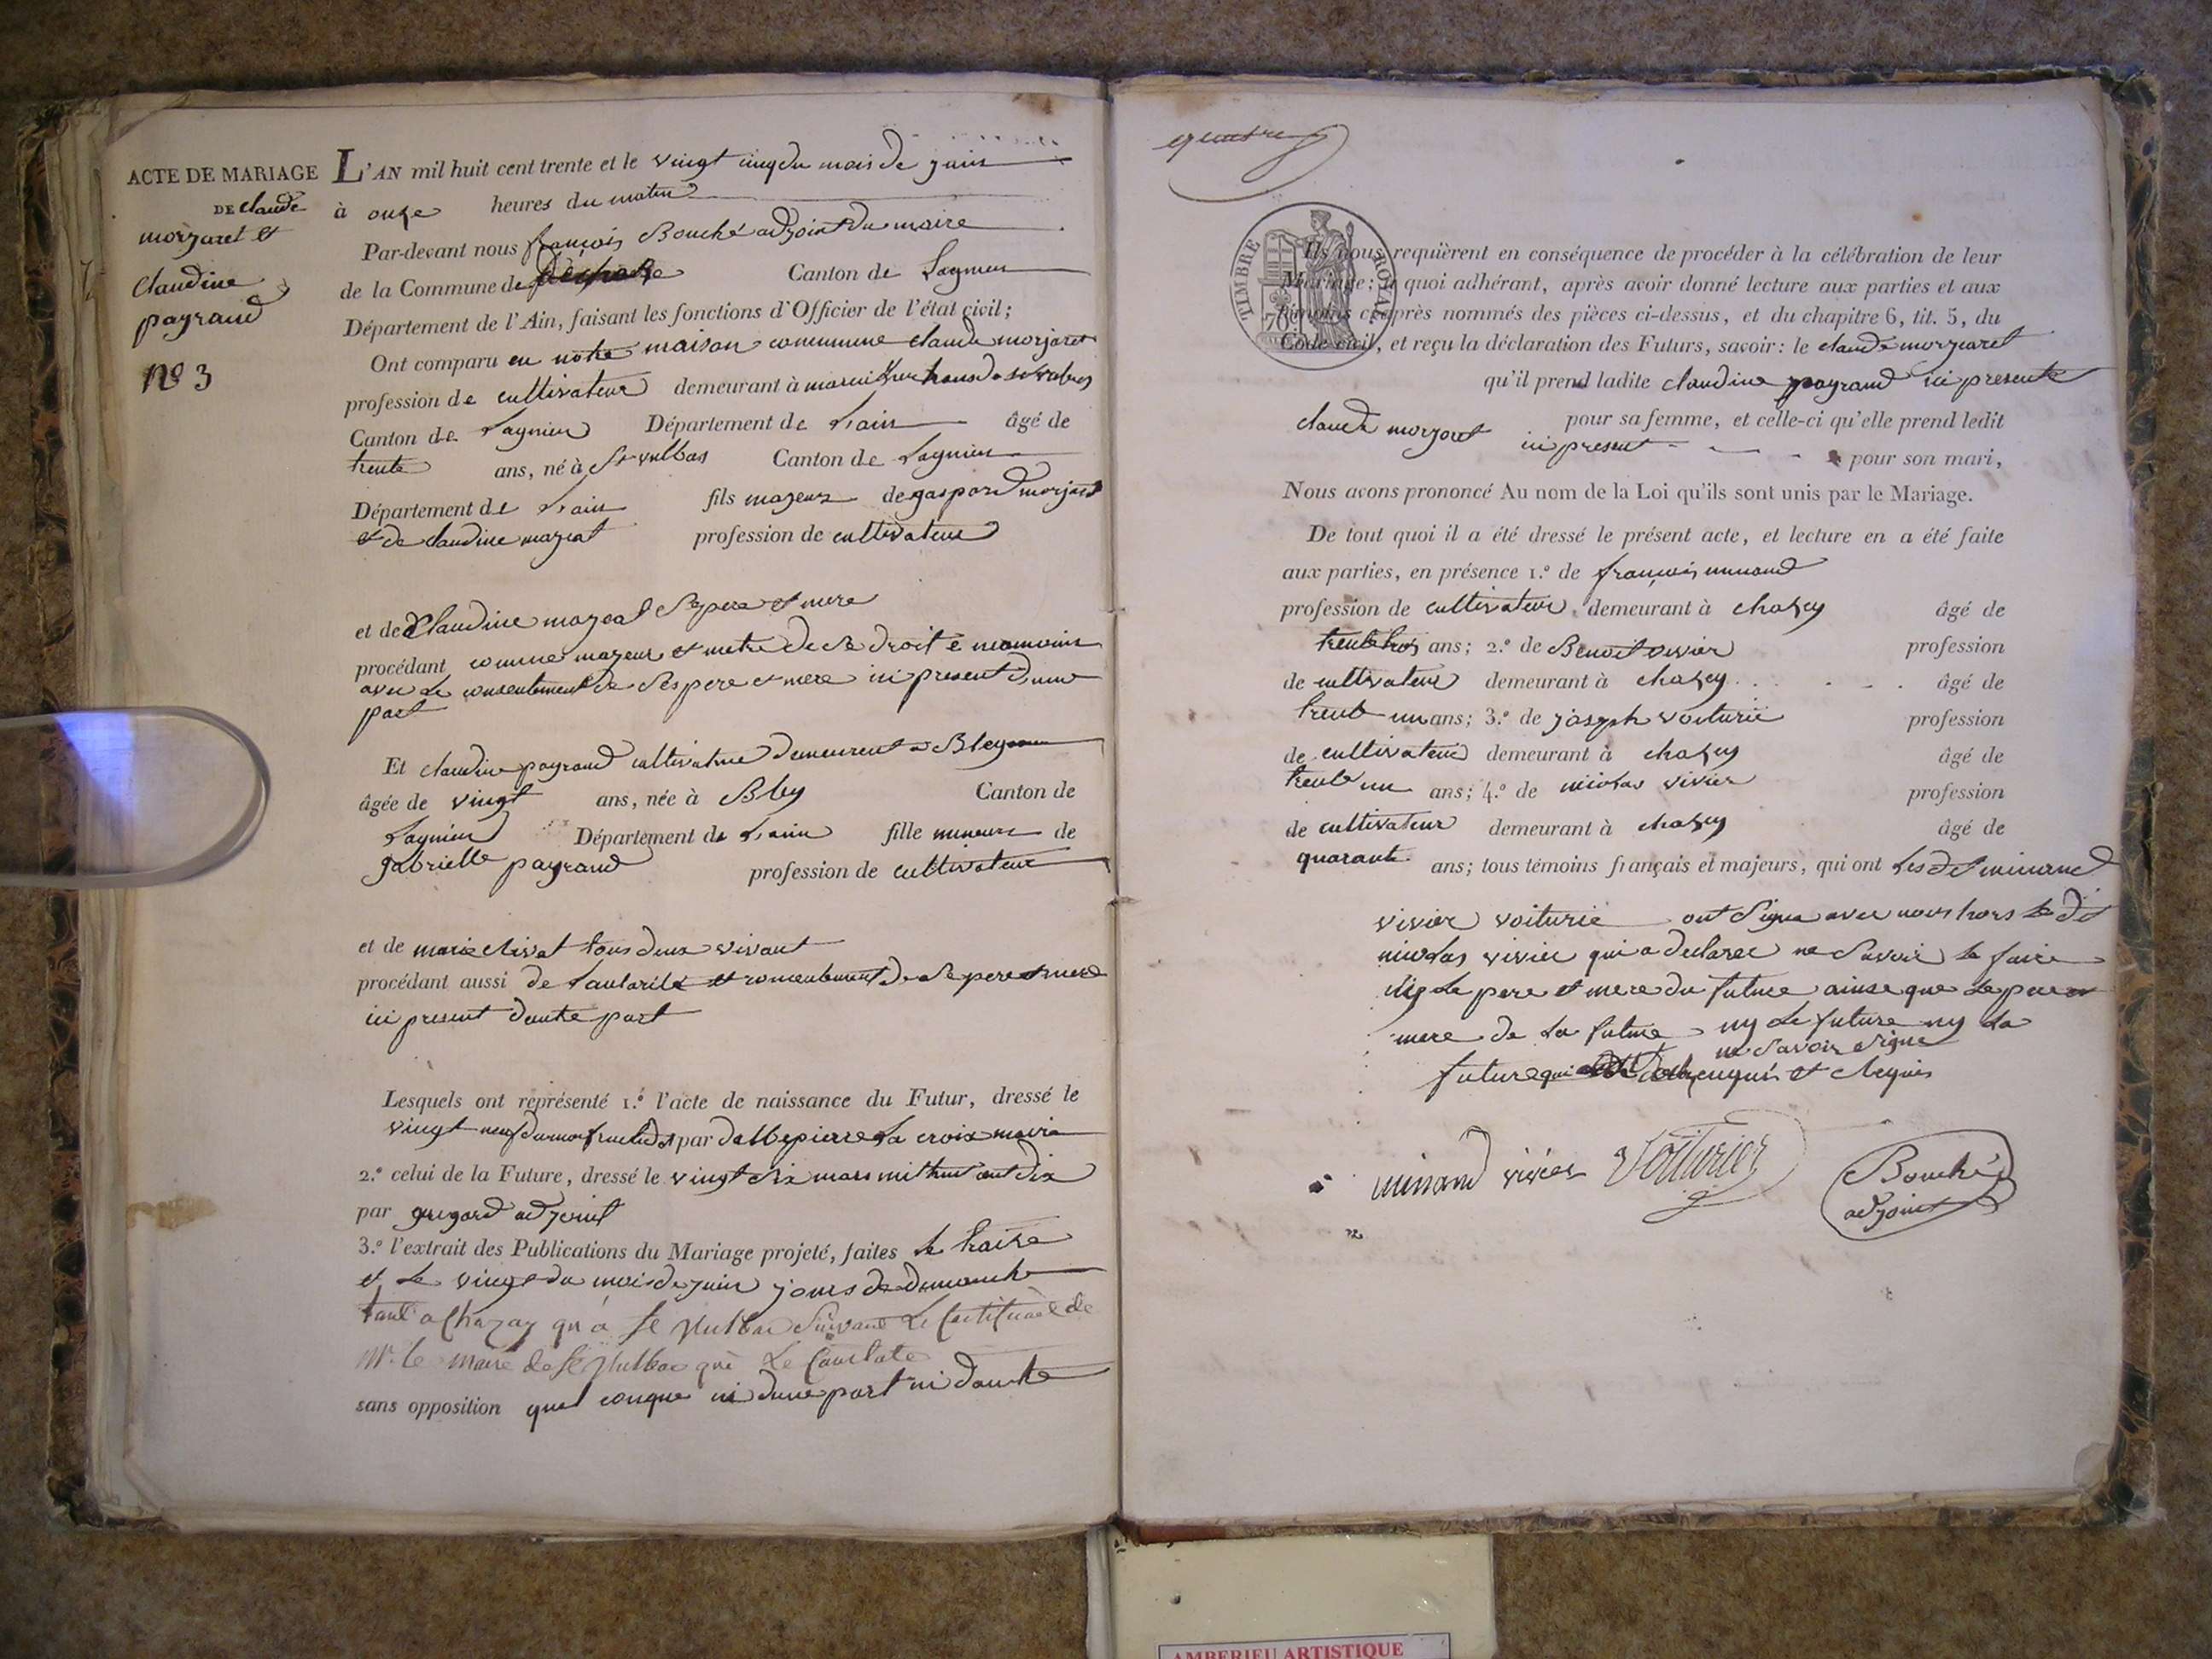 ACTE DE MARIAGE
DE claude
morjaret et
claudine
payrand
N° 3
L'AN mil huit cent trente et le vingt cinq du mois de juin
à onze heures du matin
Par-devant nous françois Bouché adjoint du maire
de la Commune de Canton de Lagnieu
Département de l'Ain, faisant les fonctions d'Officier de l'état civil;
Ont comparu en notre maison commune claude morjaret
profession de cultivateur demeurant à
Canton de Lagnieu Département de L'ain âgé de
trente ans, né à St vulbas Canton de Lagnieu
Département de L'ain fils majeur de gaspard morjaret
et de claudine mazeat profession de cultivateur
et de Claudine mazeat Se pere et mere
procédant comme majeur et metre de Se droit e
avec Le consentement de Ses pere et mere ici present d'une
part
Et claudine payrand cultivatrice demeurent a Bley
âgée de vingt ans, née à Bley Canton de
Lagnieu Département de L'ain fille mineure de
gabrielle payrand profession de cultivateur
et de marie clivat tous deux vivant
procédant aussi de Lautorité et consentement de Se pere et mere
ici present dautre part
Lesquels ont représenté 1.° l'acte de naissance du Futur, dressé le
vingt neuf du mois fructidor par dallepierre La croix maire
2.° celui de la Future, dressé le vingt Six mars mil huit cent dix
par adjoint
3.° l'extrait des Publications du Mariage projeté, faites le traise
et Le vingt du mois de juin jours de dimanche
tant a Chazay qu'à St Vulbas Suivant Le Certificat de
Mr. le Maire de St Vulbas qui Le Constate
sans opposition quel conque ni dune part ni dautre
quatre
TIMBRE ROYAL
70c
Ils nous requièrent en conséquence de procéder à la célébration de leur
Mariage; à quoi adhérant, après avoir donné lecture aux parties et aux
témoins ci-après nommés des pièces ci-dessus, et du chapitre 6, tit. 5, du
Code civil, et reçu la déclaration des Futurs, savoir: le claude morjaret
qu'il prend ladite claudine payrand ici presente
pour sa femme, et celle-ci qu'elle prend ledit
claude morjaret ici present
pour son mari,
Nous avons prononcé Au nom de la Loi qu'ils sont unis par le Mariage.
De tout quoi il a été dressé le présent acte, et lecture en a été faite
aux parties, en présence 1.° de françois minand
profession de cultivateur demeurant à chazey âgé de
trente trois ans; 2.° de Benoit vivier profession
de cultivateur demeurant à chazey âgé de
trente un ans; 3.° de joseph voiturié profession
de cultivateur demeurant à chazey âgé de
trente un ans; 4.° de nicolas vivier profession
de cultivateur demeurant à chazey âgé de
quarante ans; tous témoins français et majeurs, qui ont Les dit minand
vivier voiturié ont Signe avec nous hors le dit
nicolas vivier qui a declarer ne Savoir le faire
ny Le pere et mere du future ainse que Le pere et
mere de La future ny Le future ny La
ne Savoir Signe
future qui enquis et requis
minand vivier Voiturier
Bouché
adjoint
AMBERIEU ARTISTIQUE